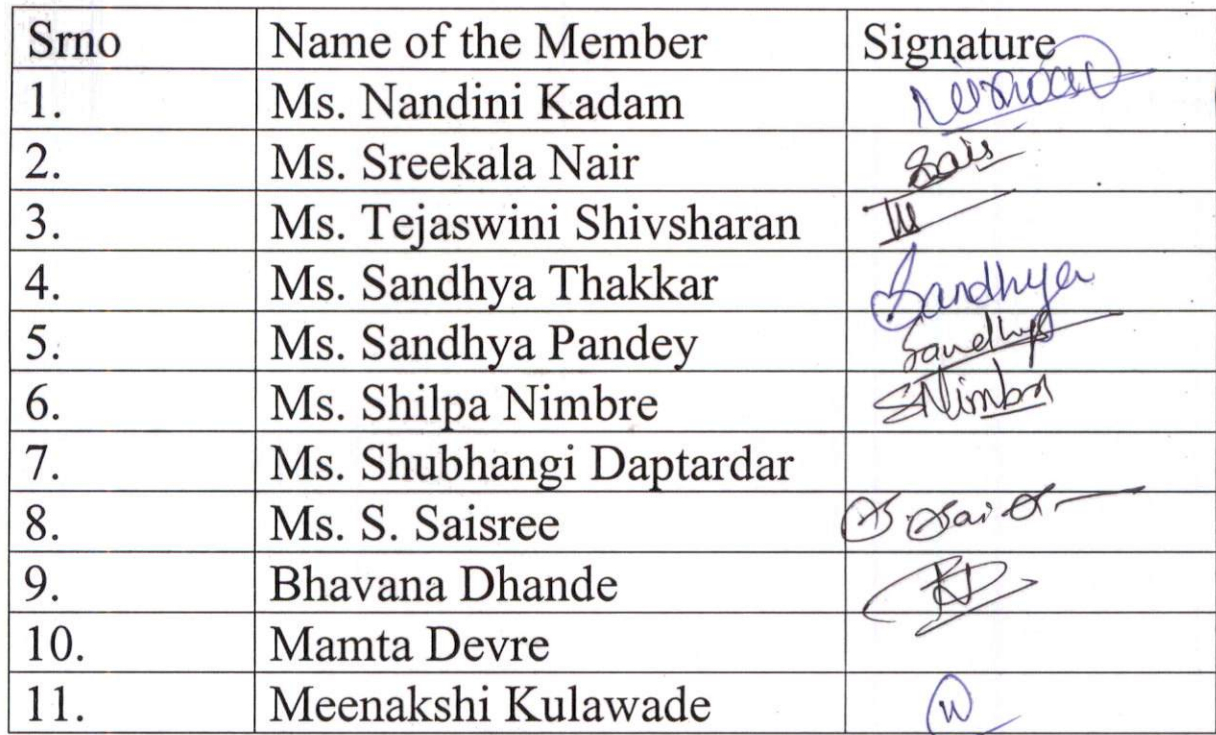 Srno Name of the Member Signature
1. Ms. Nandini Kadam
2. Ms. Sreekala Nair
3. Ms. Tejaswini Shivsharan
4. Ms. Sandhya Thakkar Sandhya
5. Ms. Sandhya Pandey Sandhya
6. Ms. Shilpa Nimbre SNimbre
7. Ms. Shubhangi Daptardar
8. Ms. S. Saisree
9. Bhavana Dhande
10. Mamta Devre
11. Meenakshi Kulawade